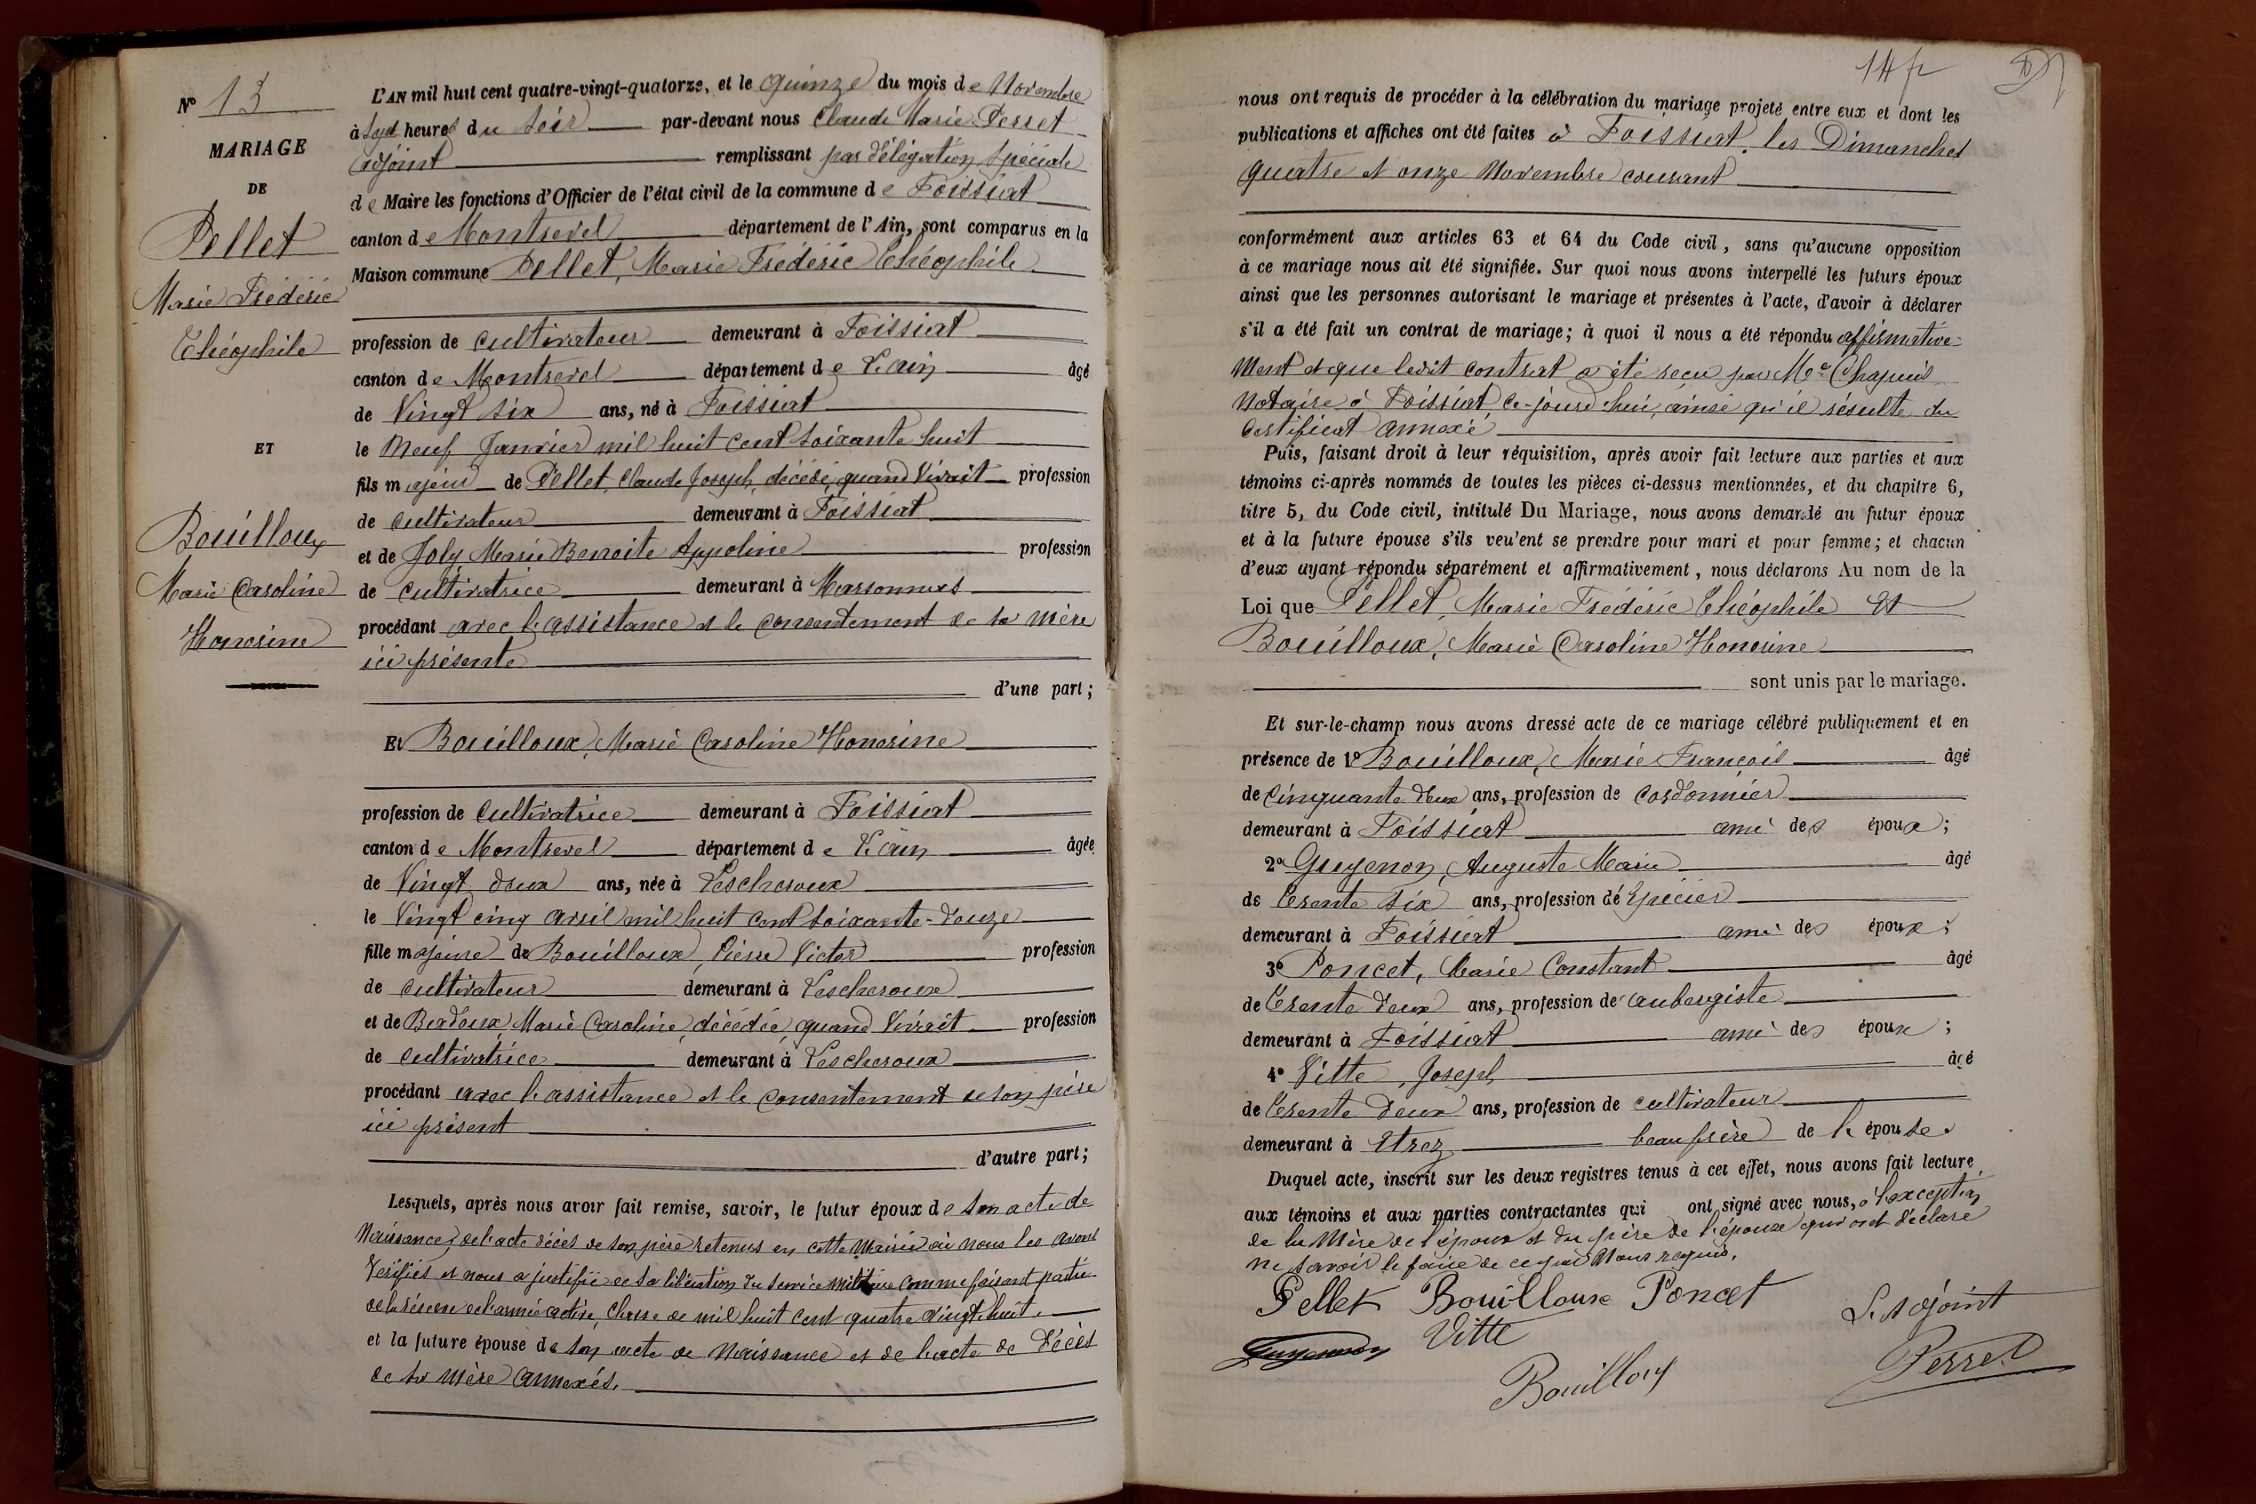 N° 13
MARIAGE
DE
Pellet
Marie Frédéric
Théophile
ET
Bouilloux
Marie Caroline
Honorine
L'AN mil huit cent quatre-vingt-quatorze, et le quinze du mois de Novembre
à Sept heures du Soir par-devant nous Claude Marie Perret
adjoint remplissant par délégation spéciale
de Maire les fonctions d'Officier de l'état civil de la commune de Foissiat
canton de Montrevel département de l'Ain, sont comparus en la
Maison commune Pellet, Marie Frédéric Théophile
profession de cultivateur demeurant à Foissiat
canton de Montrevel département de L'ain âgé
de Vingt six ans, né à Foissiat
le Neuf Janvier mil huit cent soixante huit
fils majeur de Pellet, Claude Joseph, décédé, quand Vivait profession
de cultivateur demeurant à Foissiat
et de Joly Marie Benoite Appoline profession
de cultivatrice demeurant à Marsonnas
procédant avec l'assistance et le consentement de sa mère
ici présente
d'une part;
Et Bouilloux, Marie Caroline Honorine
profession de cultivatrice demeurant à Foissiat
canton de Montrevel département de L'ain âgée
de Vingt deux ans, née à Lescheroux
le Vingt cinq avril mil huit cent soixante-douze
fille majeure de Bouilloux, Pierre Victor profession
de cultivateur demeurant à Lescheroux
et de Marie Caroline, décédée, quand Vivait profession
de cultivatrice demeurant à Lescheroux
procédant avec l'assistance et le consentement de son père
ici présent
d'autre part;
Lesquels, après nous avoir fait remise, savoir, le futur époux de son acte de
Naissance, de l'acte décès de son père retenus en cette Mairie où nous les avons
Vérifiés et nous a justifié de sa libération du service militaire comme faisant partie
de la réserve de l'armée active, Classe de mil huit cent quatre vingt huit.
et la future épouse de son acte de Naissance et de l'acte de Décès
de sa mère annexés.
14
nous ont requis de procéder à la célébration du mariage projeté entre eux et dont les
publications et affiches ont été faites à Foissiat, les Dimanches
quatre et onze Novembre courant
conformément aux articles 63 et 64 du Code civil, sans qu'aucune opposition
à ce mariage nous ait été signifiée. Sur quoi nous avons interpellé les futurs époux
ainsi que les personnes autorisant le mariage et présentes à l'acte, d'avoir à déclarer
s'il a été fait un contrat de mariage; à quoi il nous a été répondu affirmative-
ment et que ledit contrat a été reçu par Me Chapuis
Notaire à Foissiat, ce-jourd'hui, ainsi qu'il résulte du
certificat annexé
Puis, faisant droit à leur réquisition, après avoir fait lecture aux parties et aux
témoins ci-après nommés de toutes les pièces ci-dessus mentionnées, et du chapitre 6,
titre 5, du Code civil, intitulé Du Mariage, nous avons demandé au futur époux
et à la future épouse s'ils veu'ent se prendre pour mari et pour femme; et chacun
d'eux ayant répondu séparément et affirmativement, nous déclarons Au nom de la
Loi que Pellet, Marie Frédéric Théophile et
Bouilloux, Marie Caroline Honorine
sont unis par le mariage.
Et sur-le-champ nous avons dressé acte de ce mariage célébré publiquement et en
présence de 1° Bouilloux, Marie François âgé
de Cinquante deux ans, profession de cordonnier
demeurant à Foissiat ami des époux;
2° Guyenon, Auguste Marie âgé
de Trente six ans, profession de Epicier
demeurant à Foissiat ami des époux;
3° Poncet, Marie Constant âgé
de Trente deux ans, profession de aubergiste
demeurant à Foissiat ami des époux;
4° Vitte, Joseph âgé
de Trente deux ans, profession de cultivateur
demeurant à Etrez beau frère de l'épouse.
Duquel acte, inscrit sur les deux registres tenus à cet effet, nous avons fait lecture
aux témoins et aux parties contractantes qui ont signé avec nous, à l'exception
de la Mère de l'époux et du père de l'épouse qui ont déclaré
ne savoir le faire de ce par Nous requis.
Pellet Bouilloux Poncet L'adjoint
Guyenon Vitte Perret
Bouilloux